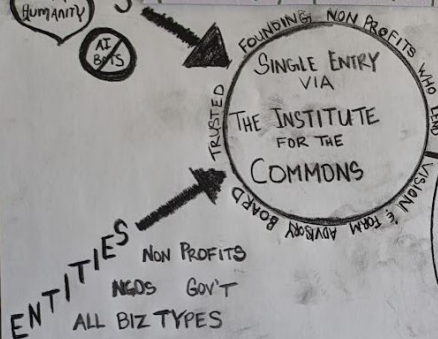 HUMANITY
S
AI
BOTS
TRUSTED FOUNDING NON PROFITS WHO LEND VISION & FORM ADVISORY BOARD
SINGLE ENTRY
VIA
THE INSTITUTE
FOR THE
COMMONS
ENTITIES
NON PROFITS
NGOS GOV'T
ALL BIZ TYPES